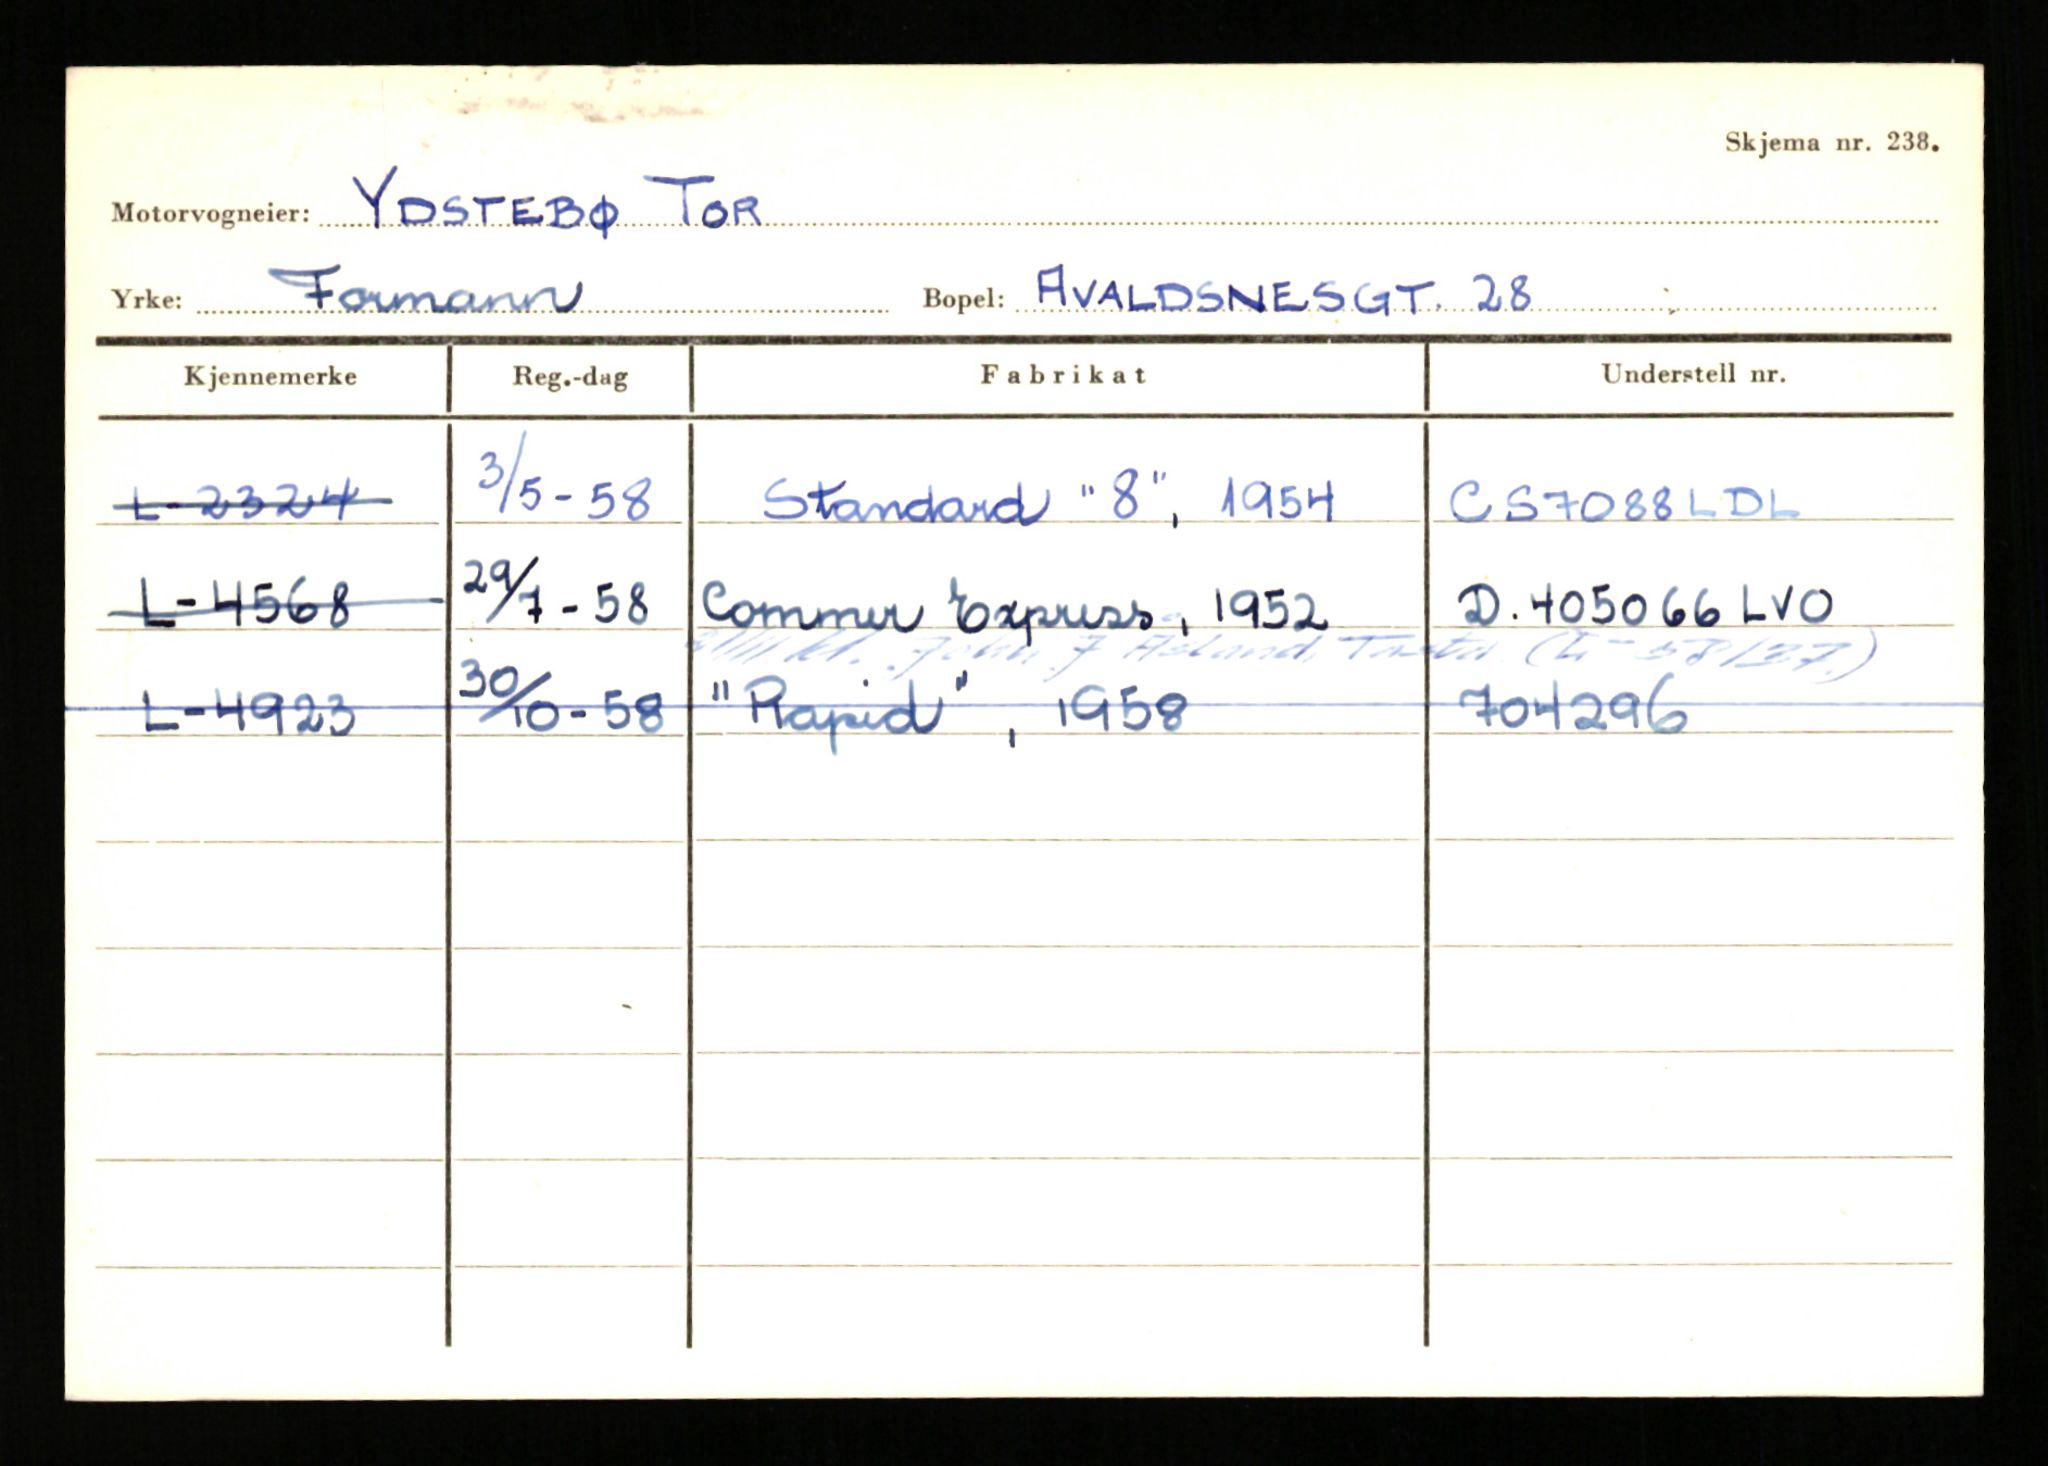 Skjema nr. 238.
Motorvogneier: YDSTEBØ TOR
Yrke: Formann Bopel: AVALDSNESGT. 28
Kjennemerke Reg.-dag Fabrikat Understell nr.
L-2324 3/5-58 Standard "8", 1954 CS7088LDL
L-4568 29/7-58 Commer Express, 1952 D.405066 LVO
kl. John J Åsland, Tasta
L-4923 30/10-58 "Rapid", 1958 704296